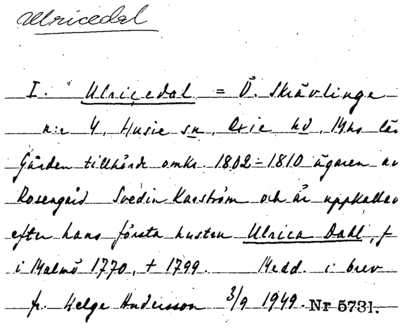 Ulricedal
I. Ulricedal = Ö. Skrävlinge
n:r 4, Husie sn, Oxie hd, Mns län
Gården tillhörde omkr. 1802-1810 ägaren av
Rosengård Svedin Karström och är uppkallad
efter hans första hustru Ulrica Dahl, f
i Malmö 1770, † 1799. Medd. i brev
fr. Helge Andersson 3/9 1949. Nr 5731.